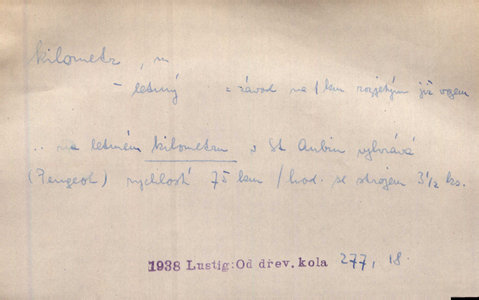 kilometr, m
- letmý = závod na 1 km rozjetým již vozem
.. na letmém kilometru v St Aubin vyhrává
(Peugeot) rychlostí 75 km/hod. se strojem 3 1/2 ks.
1938 Lustig:Od dřev.kola 277, 18.